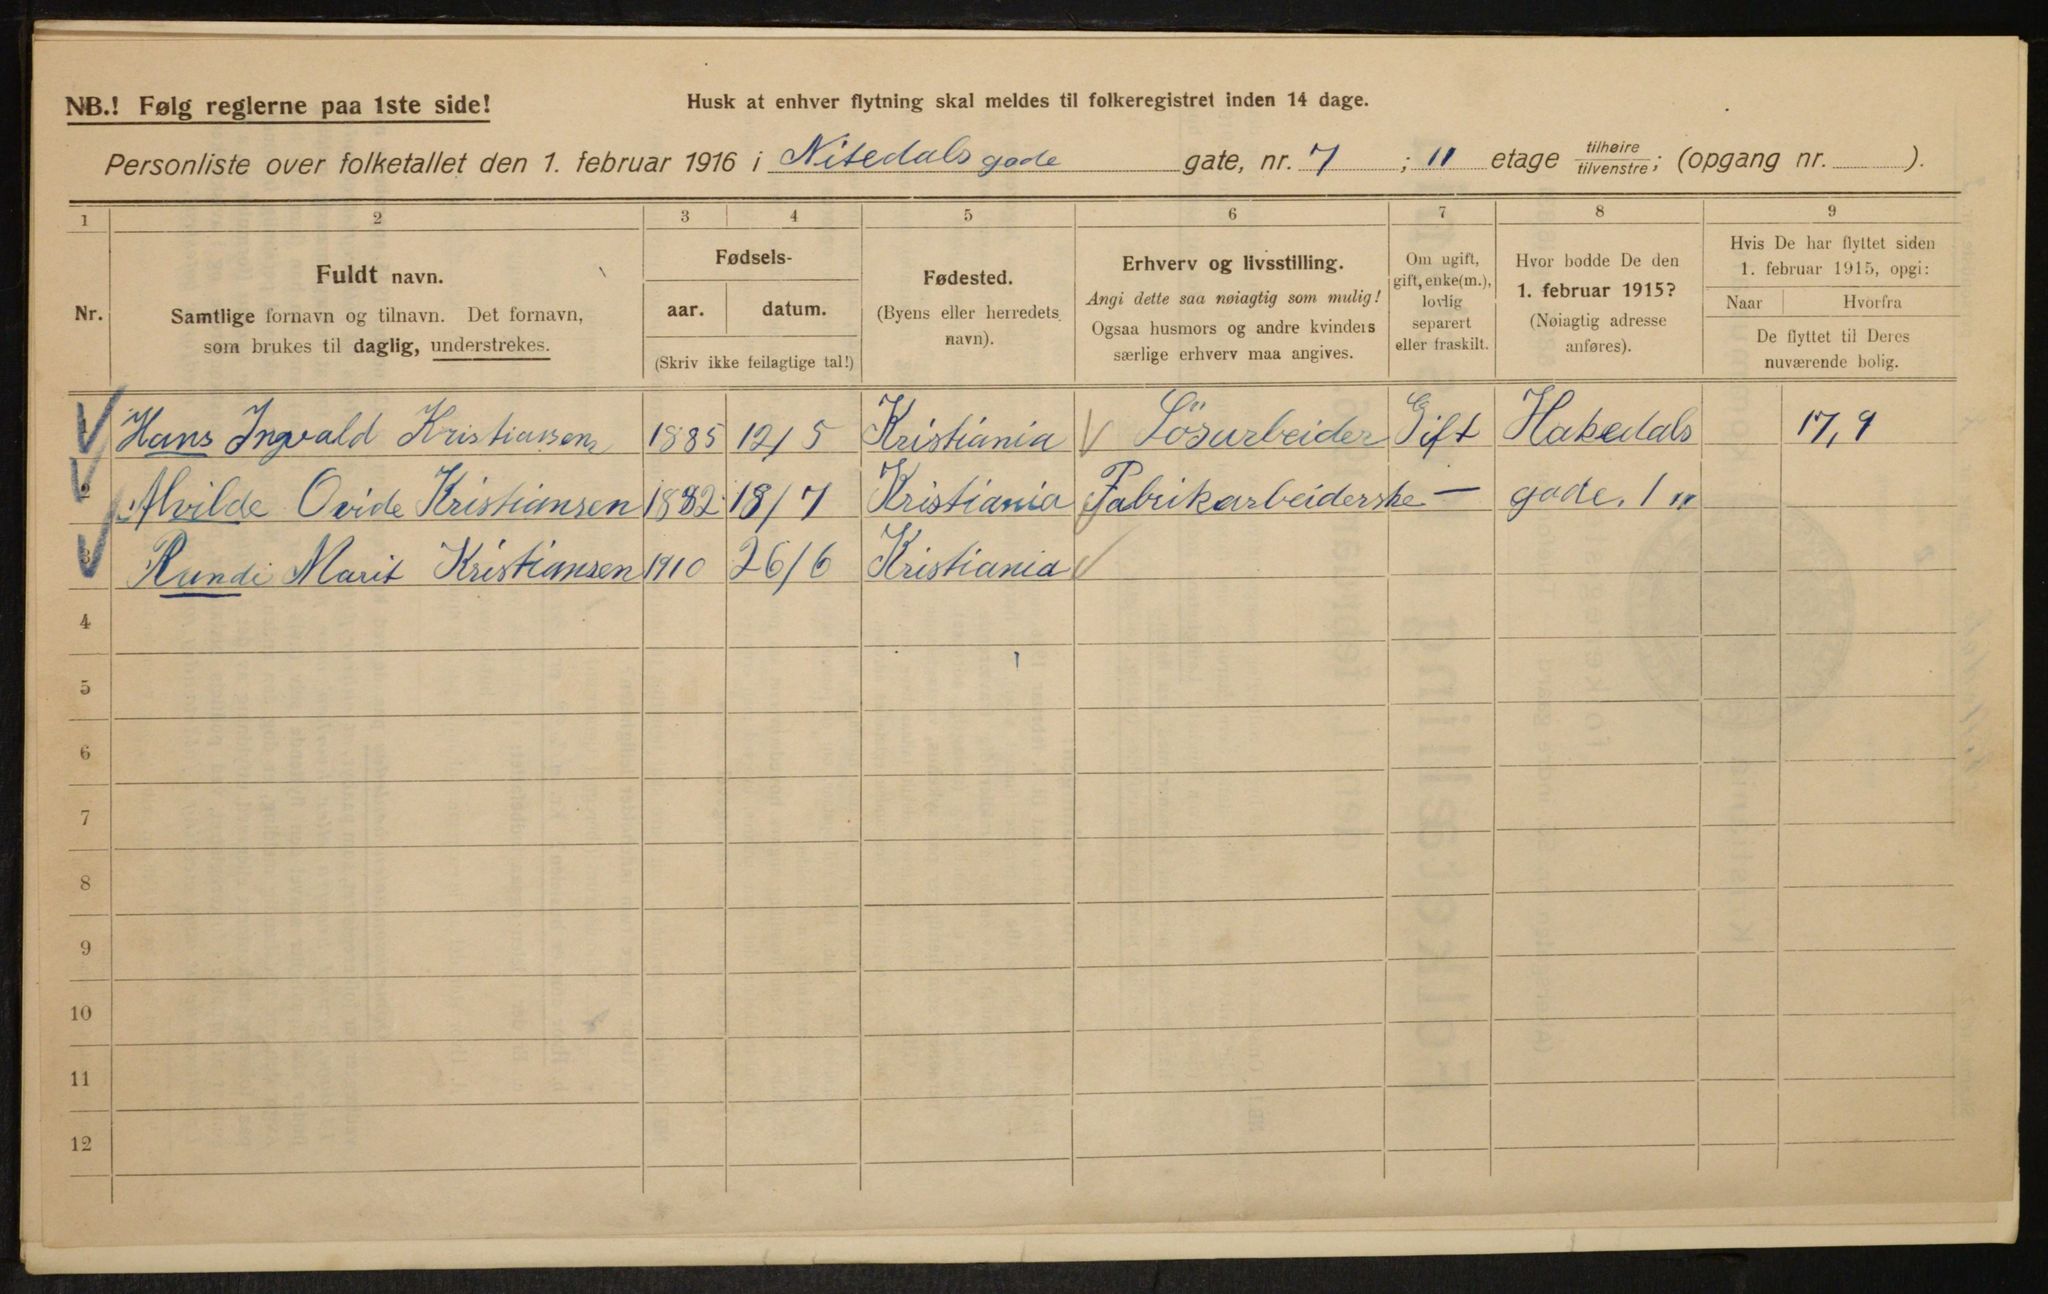 NB.! Følg reglerne paa 1ste side!
Husk at enhver flytning skal meldes til folkeregistret inden 14 dage.
Personliste over folketallet den 1. februar 1916 i Nitedals gade gate, nr. 7 ; 11 etage tilhøire/tilvenstre; (opgang nr. ).
1 2 3 4 5 6 7 8 9
Nr.
Fuldt navn.
Samtlige fornavn og tilnavn. Det fornavn,
som brukes til daglig, understrekes.
Fødsels-
aar. datum.
(Skriv ikke feilagtige tal!)
Fødested.
(Byens eller herredets
navn).
Erhverv og livsstilling.
Angi dette saa nøiagtig som mulig!
Ogsaa husmors og andre kvinders
særlige erhverv maa angives.
Om ugift,
gift, enke(m.),
lovlig
separert
eller fraskilt.
Hvor bodde De den
1. februar 1915?
(Nøiagtig adresse
anføres).
Hvis De har flyttet siden
1. februar 1915, opgi:
Naar Hvorfra
De flyttet til Deres
nuværende bolig.
1 Hans Ingvald Kristiansen 1885 12/5 Kristiania Lösarbeider Gift Hakedals 17,9
2 Alvilde Ovide Kristiansen 1882 18/7 Kristiania Fabrikarbeiderske — gade. 1 "
3 Rundi Marit Kristiansen 1910 26/6 Kristiania
4
5
6
7
8
9
10
11
12